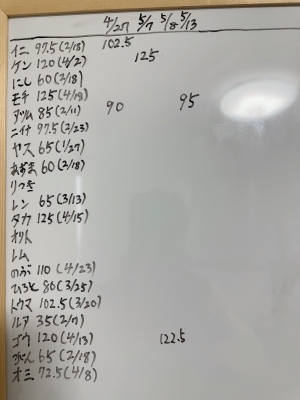 4/27 5/7 5/8 5/13
イニ 97.5 (2/18) 102.5
ケン 120 (4/2) 125
にし 60 (2/18)
モチ 125 (4/18)
アツム 85 (2/11) 90 95
ニイナ 97.5 (2/23)
ヤス 65 (1/27)
あずま 60 (2/18)
りつき
レン 65 (3/13)
タカ 125 (4/15)
オリト
レム
のぶ 110 (4/23)
ひろと 80 (3/25)
トウマ 102.5 (3/20)
ルア 35 (2/7)
ゴウ 120 (4/13) 122.5
がく 65 (2/18)
オミ 72.5 (4/8)